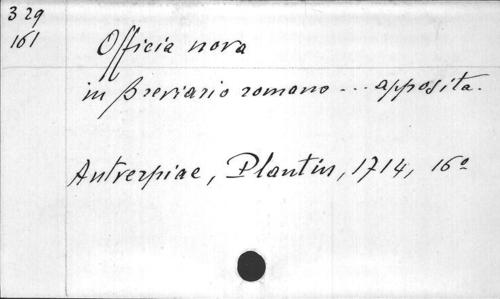 329
161
Officia nova
in Breviario romano ... apposita.
Antverpiae, Plantin, 1714, 16º